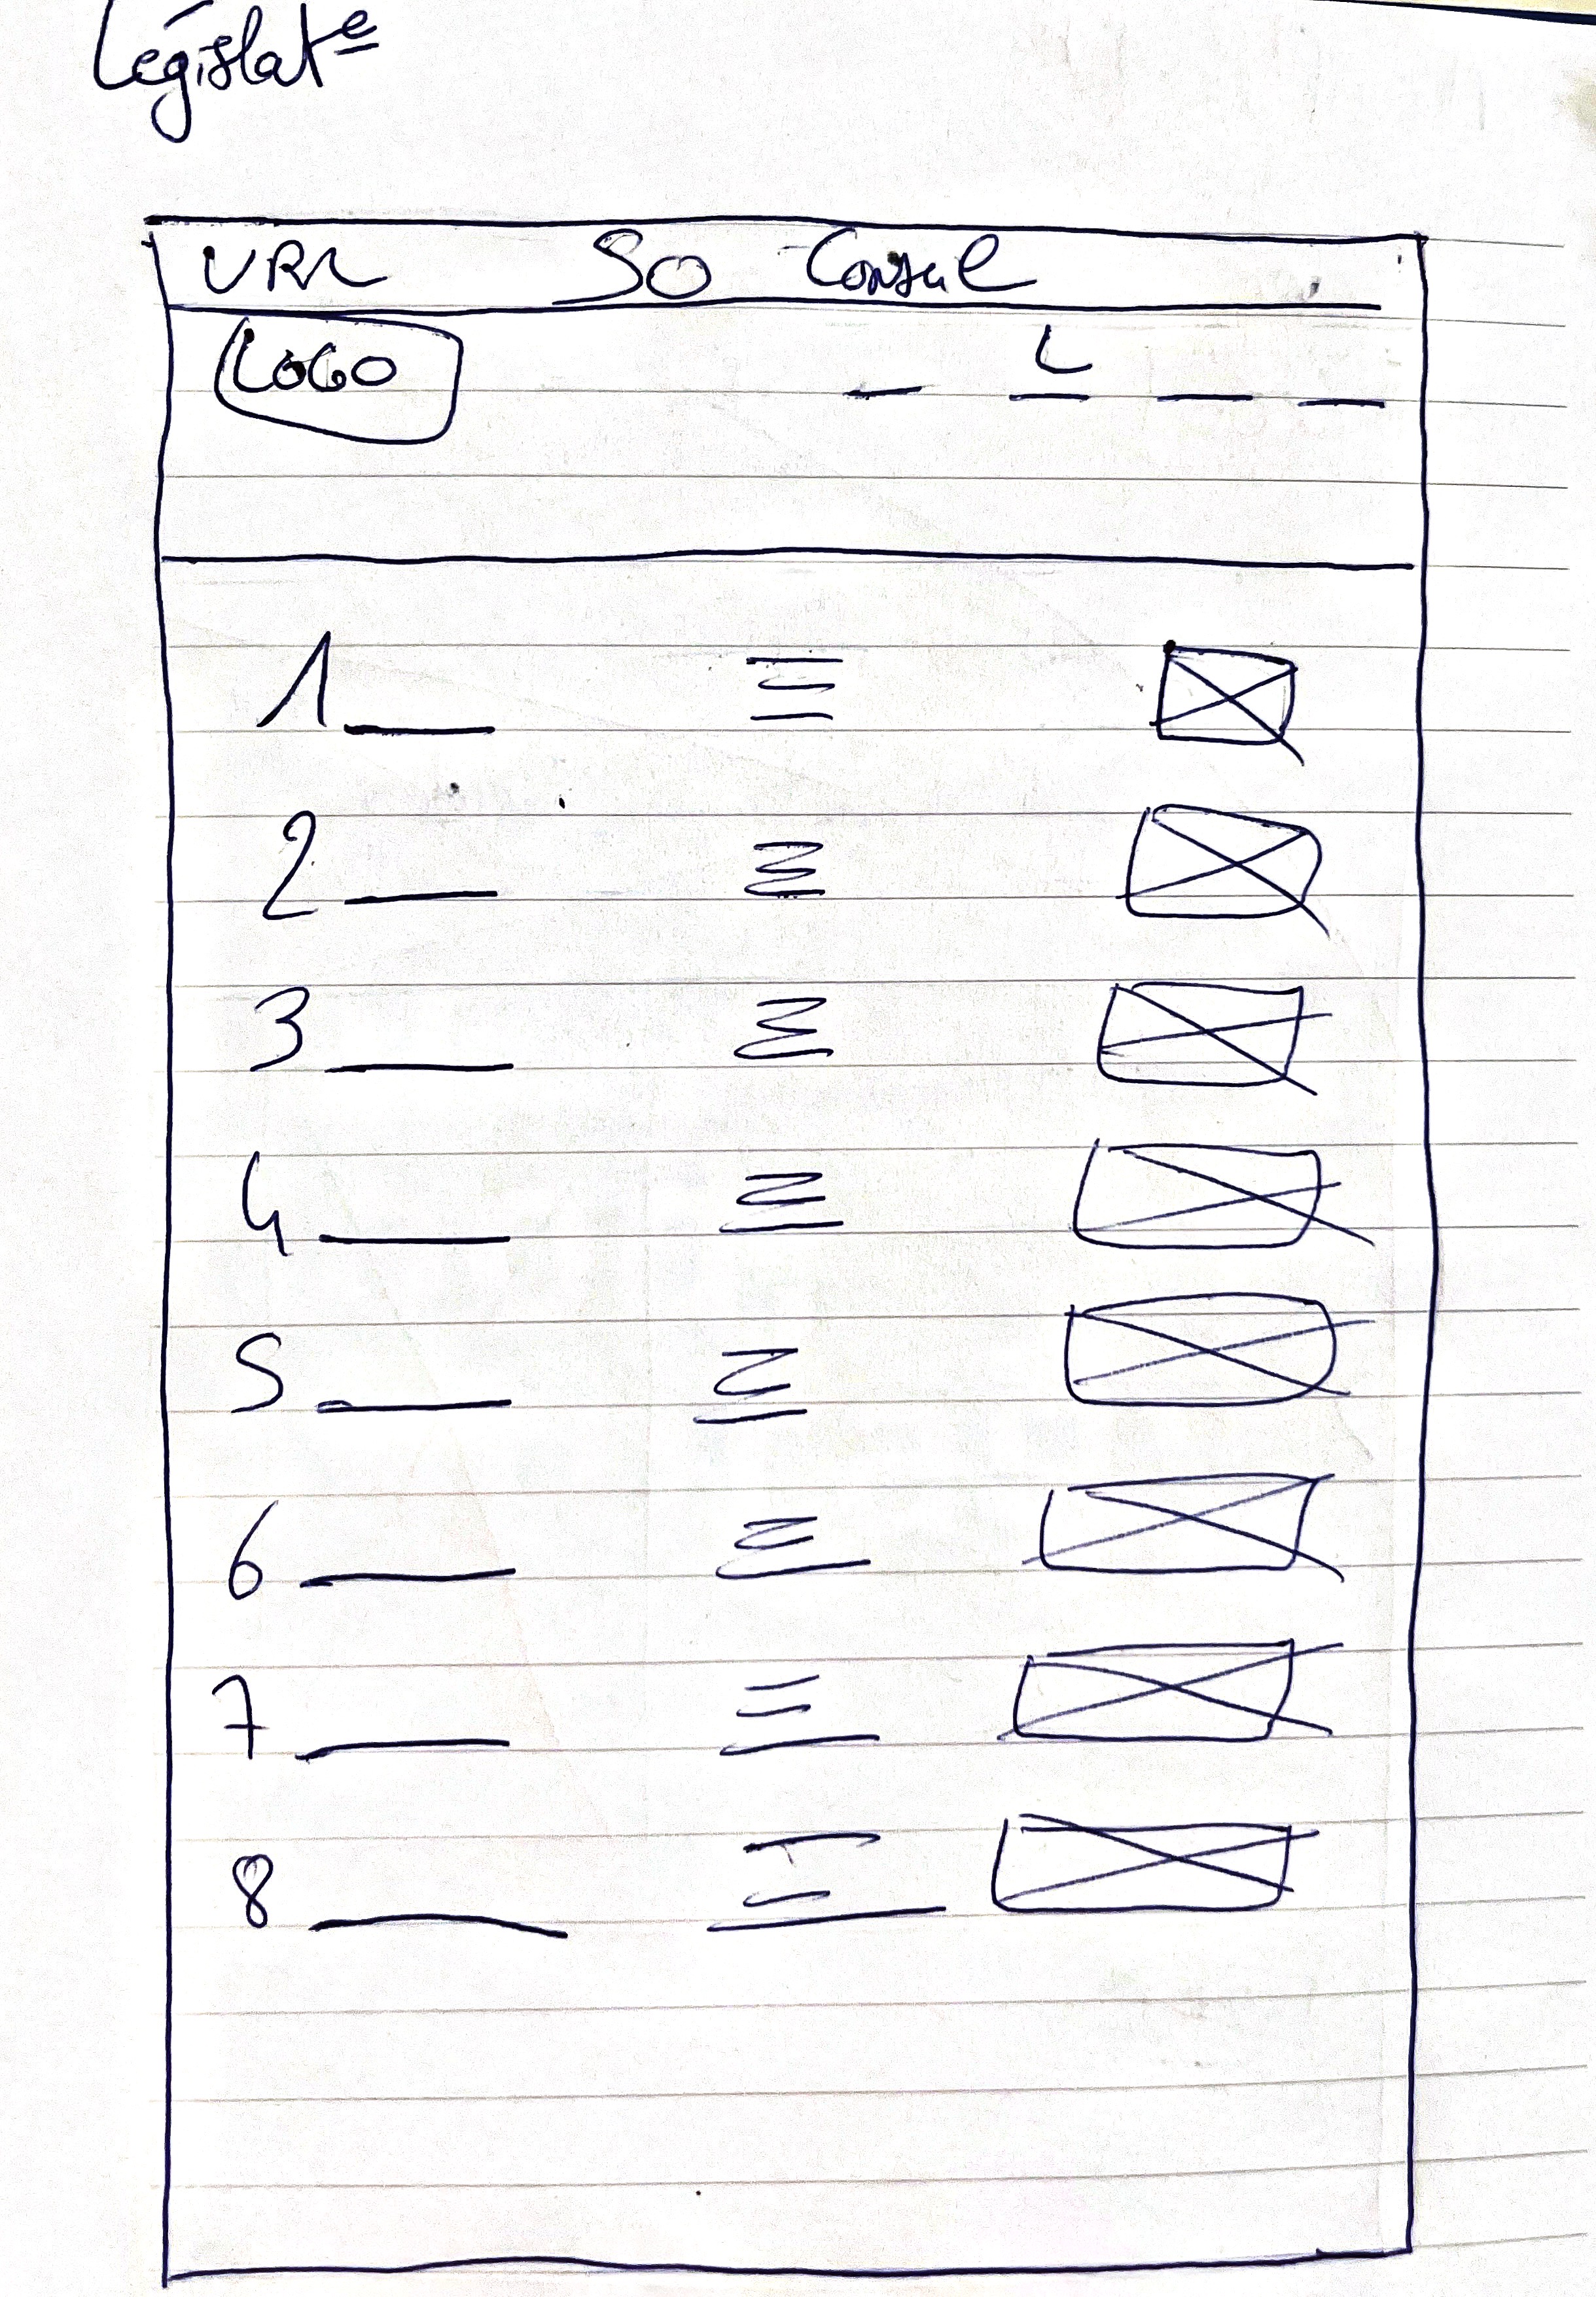 Législatᵉ
URL SO Conseil
LOGO
L
1
2
3
4
5
6
7
8